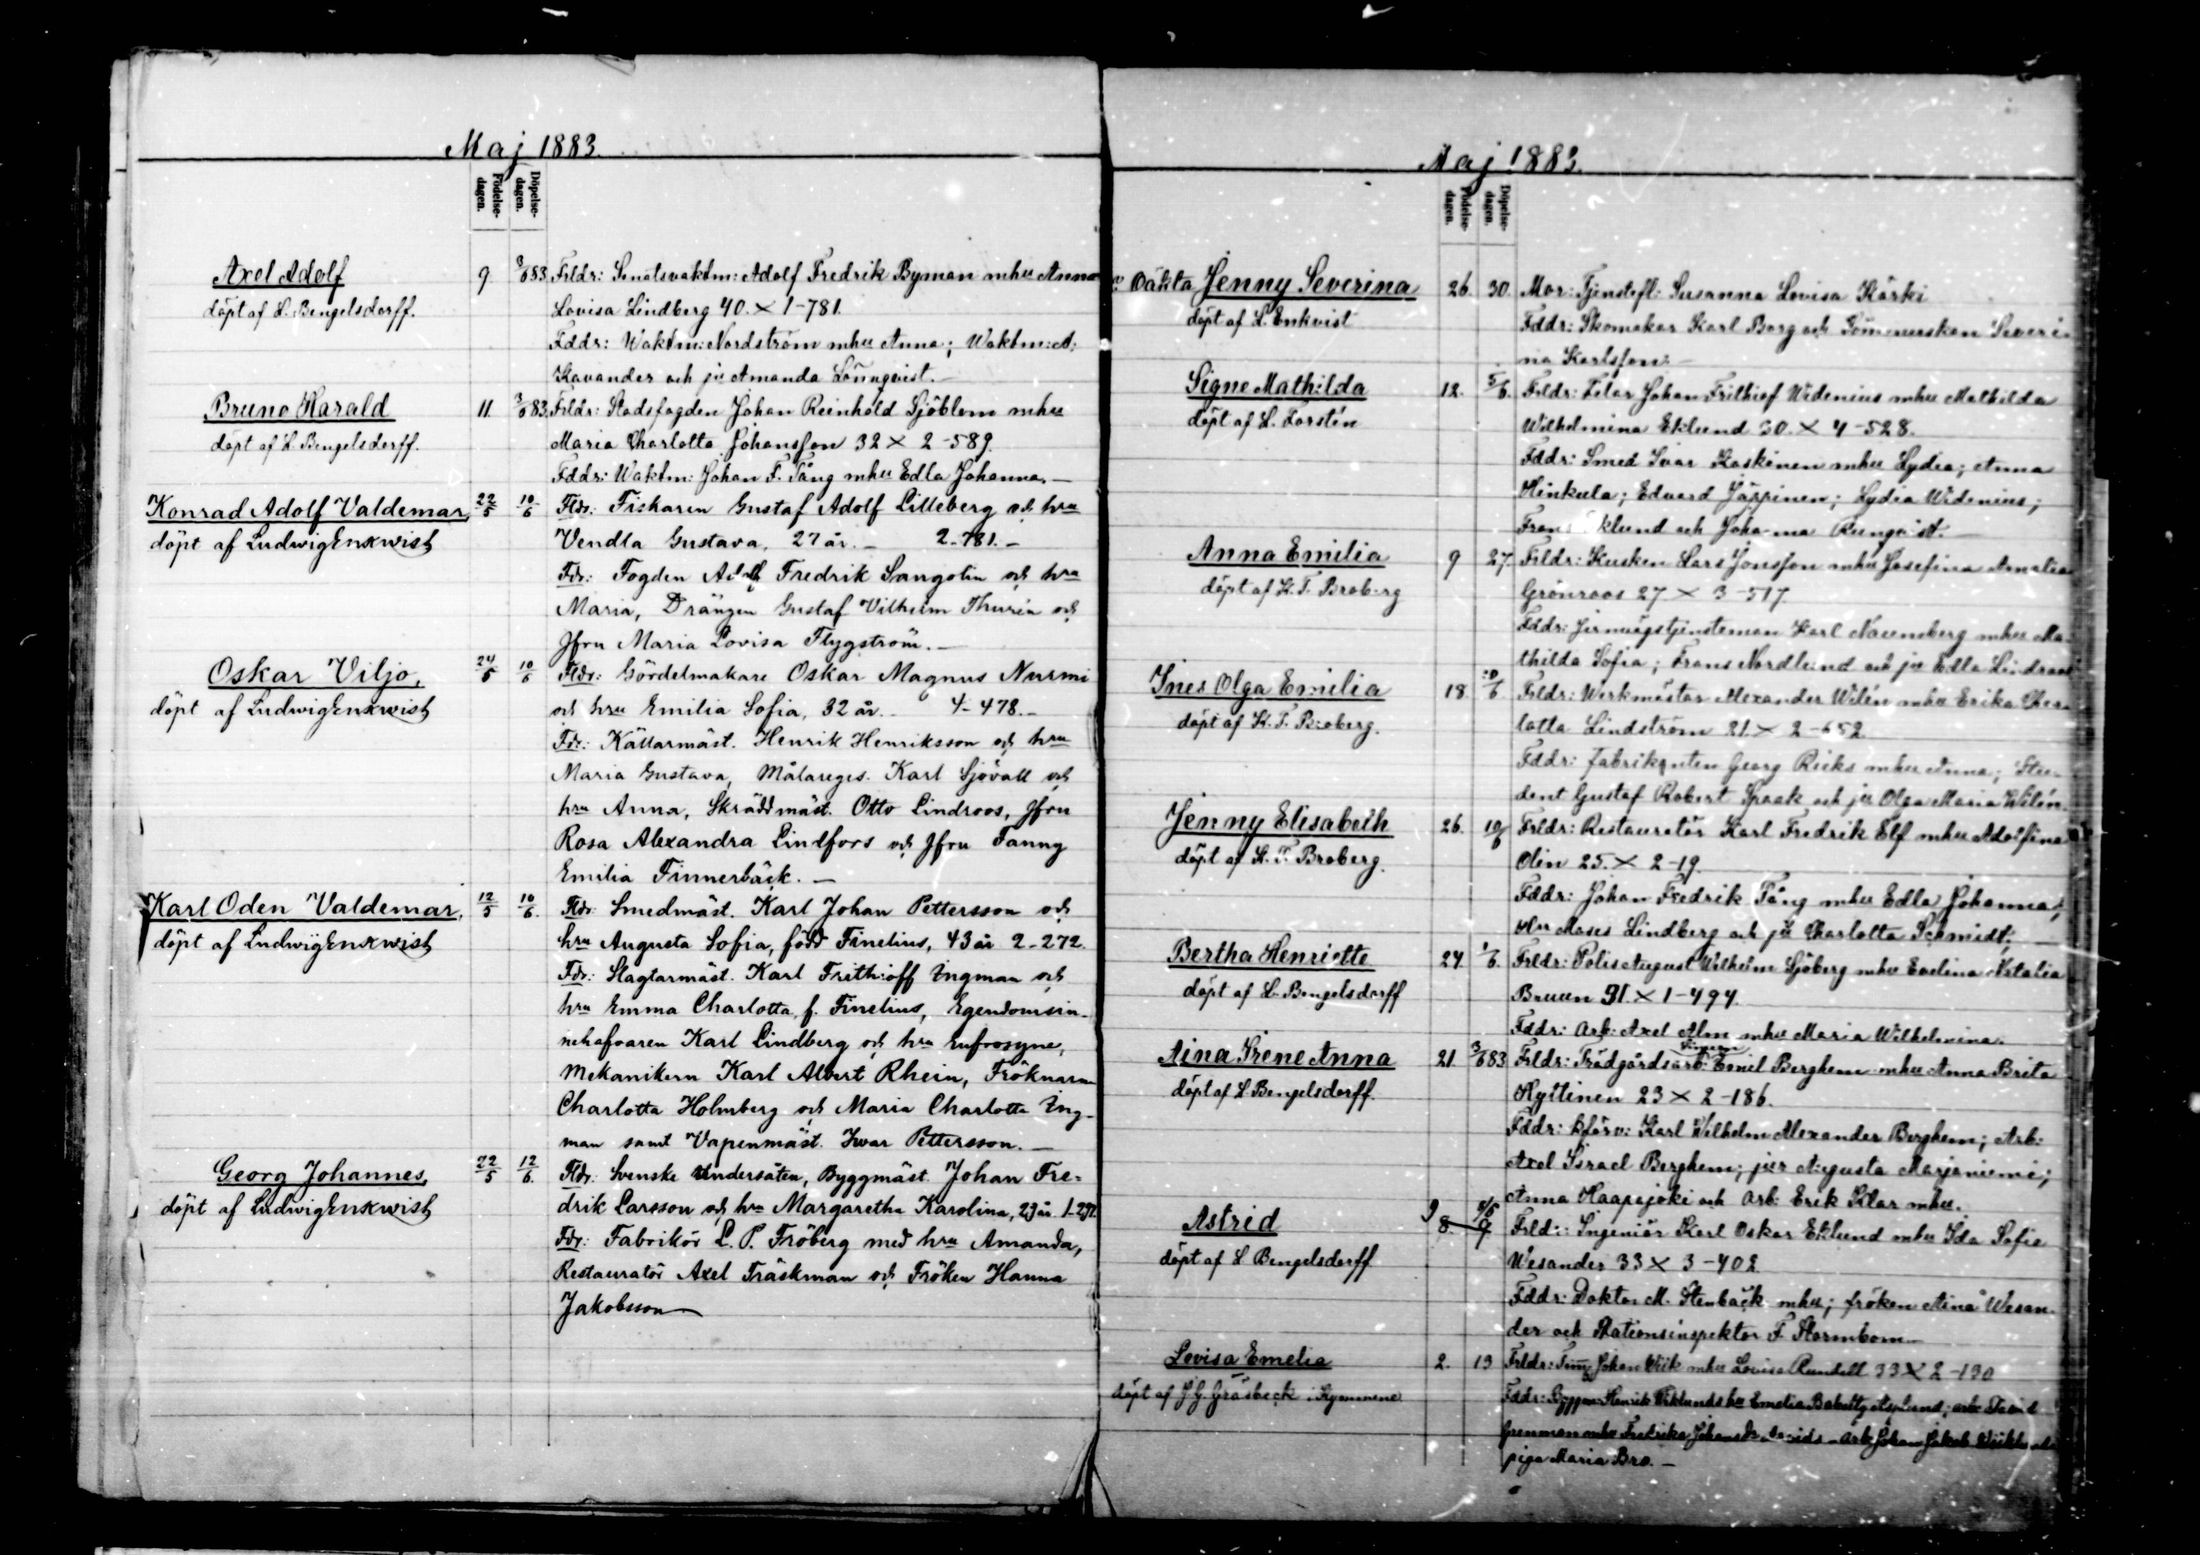 Maj 1883.
Födelse-dagen. Döpelse-dagen.
Axel Adolf 9 3/6 83 Frldr: Senatsvaktm: Adolf Fredrik Byman mhu Anna
döpt af L. Bengelsdorff. Lovisa Lindberg 40. × 1-781.
Fddr: Waktm: Nordström mhu Anna; Waktm: A.
Kavander och jfr Amanda Lönnqvist.—
Bruno Harald 11. 3/6 83. Frldr: Stadsfogden Johan Reinhold Sjöblom mhu
döpt af L. Bengelsdorff. Maria Charlotta Johansson 32 × 2-589.
Fddr: Waktm: Johan F. Tång mhu Edla Johanna.—
Konrad Adolf Valdemar, 22/5 10/6 Fldr: Fiskaren Gustaf Adolf Lilleberg och hru
döpt af Ludwig Enkwist Vendla Gustava, 27 år.— 2-781.—
Fdr: Fogden Adolf Fredrik Sangolin och hru
Maria, Drängen Gustaf Vilhelm Thurin och
Jfru Maria Lovisa Flygström.—
Oskar Viljo, 24/5 10/6 Fldr: Gördelmakare Oskar Magnus Nurmi
döpt af Ludwig Enkwist och hru Emilia Sofia, 32 år.— 4-478.—
Fdr: Källarmäst. Henrik Henriksson och hru
Maria Gustava, Målareges. Karl Sjövall och
hru Anna, Skräddmäst. Otto Lindroos, Jfru
Rosa Alexandra Lindfors och Jfru Fanny
Emilia Finnerbäck.—
Karl Oden Valdemar, 12/5 10/6. Fldr: Smedmäst. Karl Johan Pettersson och
döpt af Ludwig Enkwist hru Augusta Sofia, född Finelius, 43 år 2-272.
Fdr: Slagtarmäst. Karl Frithioff Ingman och
hru Emma Charlotta, f. Finelius, Egendomsin-
nehafvaren Karl Lindberg och hru Eufrosyne,
Mekanikern Karl Albert Rhein, Fröknarna
Charlotta Holmberg och Maria Charlotta Ing-
man samt Vapenmäst. Iwar Pettersson.—
Georg Johannes, 22/5 12/6. Fldr: Svenske Undersåten, Byggmäst. Johan Fre-
döpt af Ludwig Enkwist drik Larsson och hru Margaretha Karolina, 29 år
Fdr: Fabrikör L. P. Fröberg med hru Amanda,
Restauratör Axel Träskman och Fröken Hanna
Jakobsson
Maj 1883.
Födelse-dagen. Döpelse-dagen.
Oäkta Jenny Severina 26. 30. Mor: Tjenstefl: Susanna Lovisa Kärki
döpt af L. Enkvist Fddr: Skomakar Karl Borg och Severi-
na Karlsson.—
Signe Mathilda 12. 5/6. Frldr: Filar Johan Frithiof Widenius mhu Mathilda
döpt af L. Forstén Wilhelmina Eklund 30. × 4-528.
Fddr: Smed Ivar Koskinen mhu Lydia; Anna
Hinkula; Edvard Jäppinen; Lydia Widenius;
Frans Eklund och Johanna
Anna Emilia 9 27. Frldr: Kusken Lars Jonsson mhu Josefina Amalia
döpt af K. F. Broberg Grönroos 27 × 3-517.
Fddr: Jernvägstjensteman Karl mhu Ma-
thilda Sofia; Frans Nordlund och jfr Edla Lindroos
Ines Olga Emilia 18. 10/6. Frldr: Werkmästar Alexander Wilén mhu Erika Char-
döpt af K. F. Broberg. lotta Lindström 21. × 2-652.
Fddr: Fabrikanten Georg Rieks mhu Anna; Stu-
dent Gustaf Robert Spaak och jfr Olga Maria Wilén.
Jenny Elisabeth 26. 10/6 Frldr: Restauratör Karl Fredrik Elf mhu Adolfina
döpt af K. F. Broberg. Olin 25. × 2-19.
Fddr: Johan Fredrik Tång mhu Edla Johanna;
Hr Moses Lindberg och jfr Charlotta Schmidt.—
Bertha Henriette 24. 1/6. Frldr: Polis August Wilhelm Sjöberg mhu Evelina Natalia
döpt af L. Bengelsdorff Bruun 31. × 1-494.
Fddr: Arb: Axel Alm mhu Maria Wilhelmina.
Aina Irene Anna 21 3/6 83 Frldr: Trädgårdsarb: Emil Berghem mhu Anna Brita
döpt af L. Bengelsdorff. Hyttinen 23 × 2-186.
Fddr: Karl Wilhelm Alexander Berghem; Arb:
Axel Israel Berghem; jfr Augusta Marjaniemi;
Anna Haapajoki och Arb. Erik mhu.
Astrid 9 Frldr: Ingeniör Karl Oskar Eklund mhu Ida Sofia
döpt af L Bengelsdorff Wesander 33 × 3-402
Fddr: Doktor M. Stenbäck mhu; fröken Aina Wesan-
der och Stationsinspektor F. Stormbom—
Lovisa Emelia 2. 13 Frldr: Johan Wiik mhu Lovisa Rundell 33 × 2-190
döpt af J. G. Gräsbeck i Kymmene Fddr: Henrik Wiklund Emelia
mhu Fredrika Arb Johan Jakob
piga Maria Bro.—